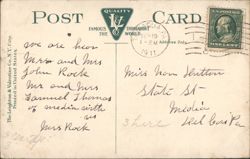 POST CARD
QUALITY
FAMOUS THROUGHOUT THE WORLD
The Leighton & Valentine Co., N.Y. City.
Printed in United States.
1911
we are here
Mrs and Mrs
John Rock
Mr and Mrs
Samuel Thomas
of media with
us
Mrs Rock
Miss Nora Hutton
State St
Media
Del Co Pa